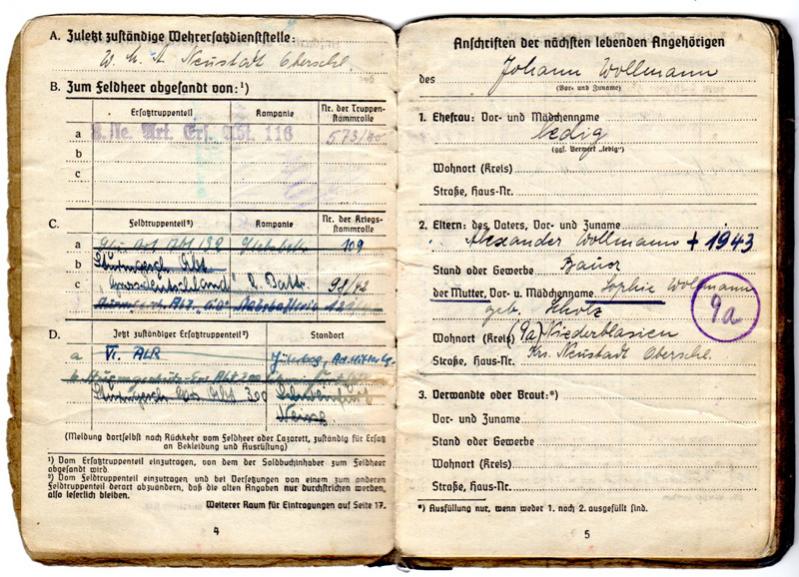 A. Zuletzt zuständige Wehrersatzdienststelle:
W. M. A Neustadt Oberschl.
B. Zum Feldheer abgesandt von:¹)
Ersatztruppenteil Kompanie Nr. der Truppenstammrolle
a Art. Ers. Abt. 116 573/40
b
c
C. Feldtruppenteil²) Kompanie Nr. der Kriegsstammrolle
a 109
b Sturmgesch. Abt.
c "Grossdeutschland" 2. Battr. 98/42
D. Jetzt zuständiger Ersatztruppenteil²) Standort
a VI. ALR Jüterbog,
b. Abt 300
Sturmgesch Ers Abt 300 Schweinfurt
Neisse
(Meldung dortselbst nach Rückkehr vom Feldheer oder Lazarett, zuständig für Ersatz
an Bekleidung und Ausrüstung)
¹) Vom Ersatztruppenteil einzutragen, von dem der Soldbuchinhaber zum Feldheer
abgesandt wird.
²) Vom Feldtruppenteil einzutragen und bei Versetzungen von einem zum anderen
Feldtruppenteil derart abzuändern, daß die alten Angaben nur durchstrichen werden,
also leserlich bleiben.
Weiterer Raum für Eintragungen auf Seite 17.
4
Anschriften der nächsten lebenden Angehörigen
des Johann Wollmann
(Vor- und Zuname)
1. Ehefrau: Vor- und Mädchenname
ledig
(ggf. Vermerk „ledig“)
Wohnort (Kreis)
Straße, Haus-Nr.
2. Eltern: des Vaters, Vor- und Zuname
Alexander Wollmann + 1943
Stand oder Gewerbe Bauer
der Mutter, Vor- u. Mädchenname Sophie Wollmann
geb. Scholz
9a
Wohnort (Kreis) (9a) Niederblasien
Straße, Haus-Nr. Krs. Neustadt Oberschl.
3. Verwandte oder Braut:*)
Vor- und Zuname
Stand oder Gewerbe
Wohnort (Kreis)
Straße, Haus-Nr.
*) Ausfüllung nur, wenn weder 1. noch 2. ausgefüllt sind.
5